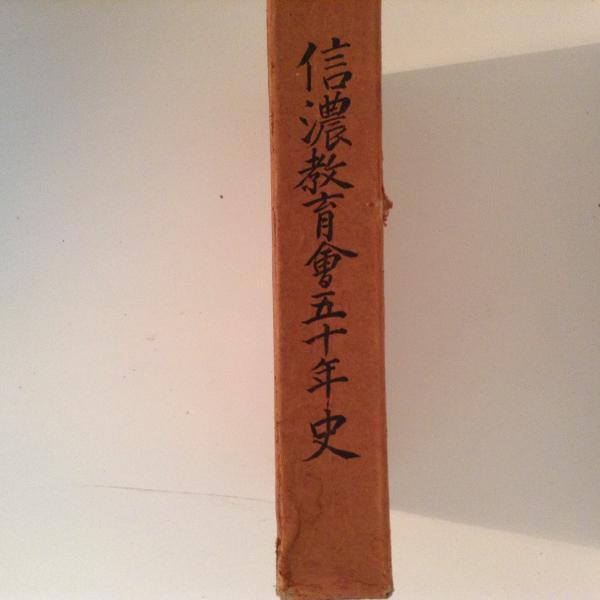 信濃教育會五十年史